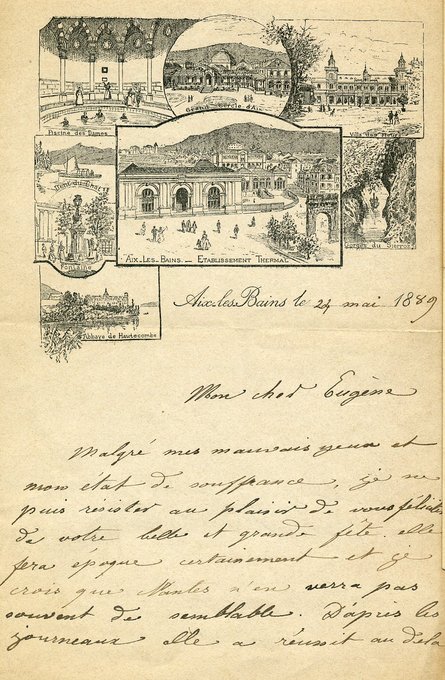 Piscine des Dames
Grand Cercle d'Aix
Villa des Fleurs
Dent du Chat
Fontaine
Gorges du Sierroz
Aix-les-Bains _ Etablissement Thermal
Abbaye de Hautecombe
Aix-les-Bains le 24 mai 1889
Mon cher Eugène
Malgré mes mauvais yeux et
mon état de souffrance, je ne
puis résister au plaisir de vous féliciter
de votre belle et grande fête. elle
fera époque certainement et je
crois que Nantes n'en verra pas
souvent de semblable. D'après les
journeaux elle a réussit au dela